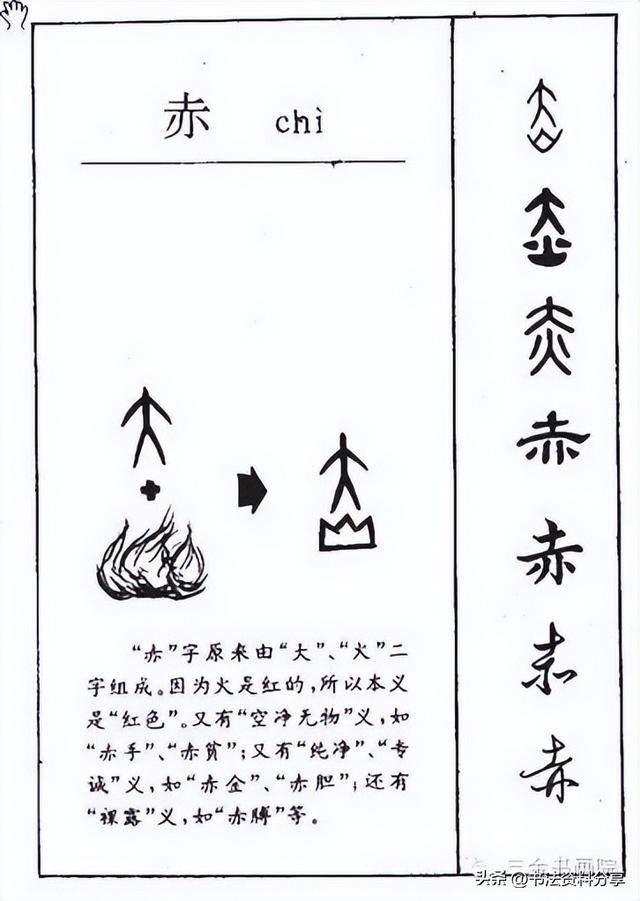 赤 chì
“赤”字原来由“大”、“火”二
字组成。因为火是红的，所以本义
是“红色”。又有“空净无物”义，如
“赤手”、“赤贫”；又有“纯净”、“专
诚”义，如“赤金”、“赤胆”；还有
“裸露”义，如“赤膊”等。
赤
赤
赤
赤
赤
赤
赤
三金书画院
头条@书法资料分享